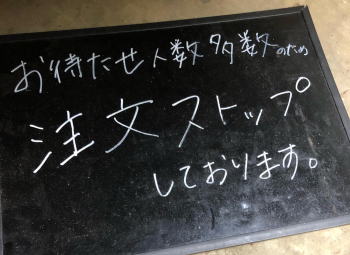 お待たせ人数多数のため
注文ストップ
しております。